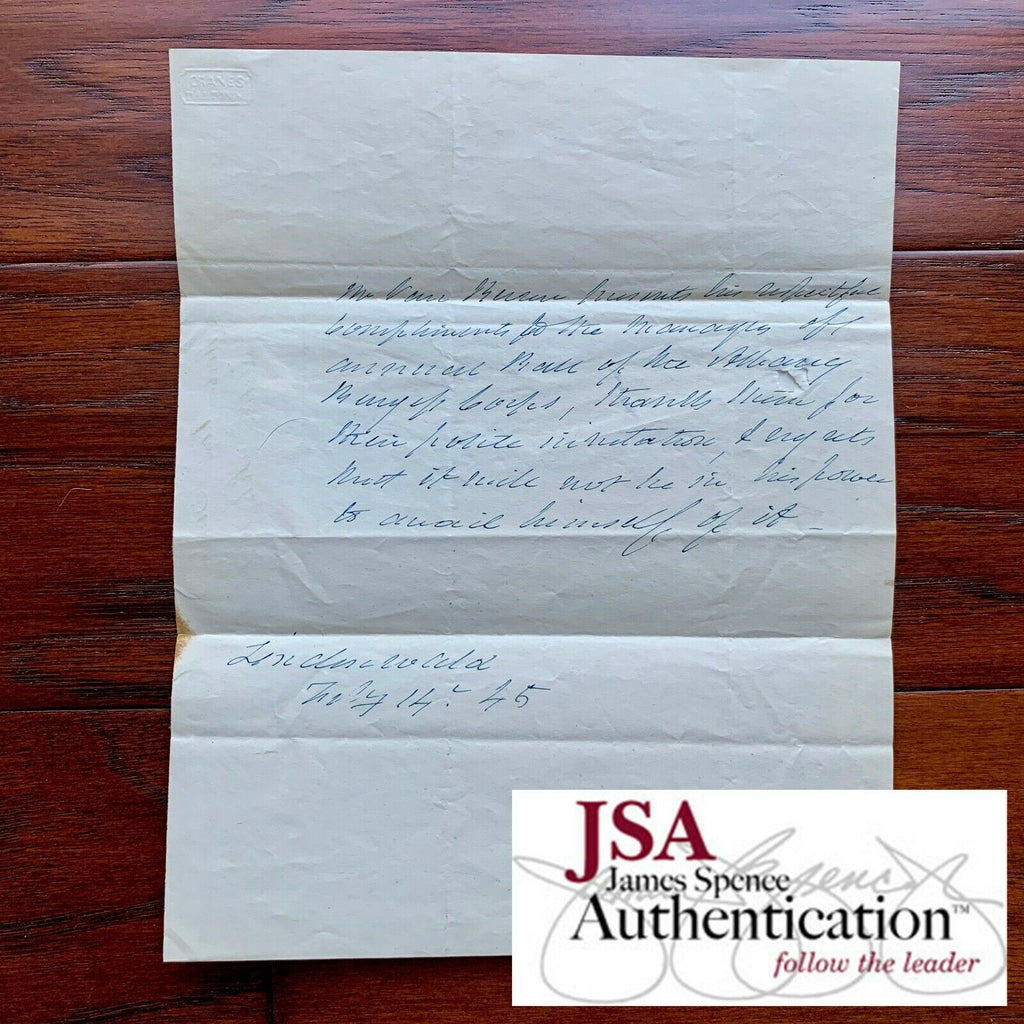 CRANES
Mr Van Buren presents his respectful
compliments to the Managers of
annual Ball of the Albany
Burgess Corps, thanks them for
their polite invitation, & regrets
that it will not be in his power
to avail himself of it –
Lindenwald
14. 45
JSA
James Spence
Authentication™
follow the leader